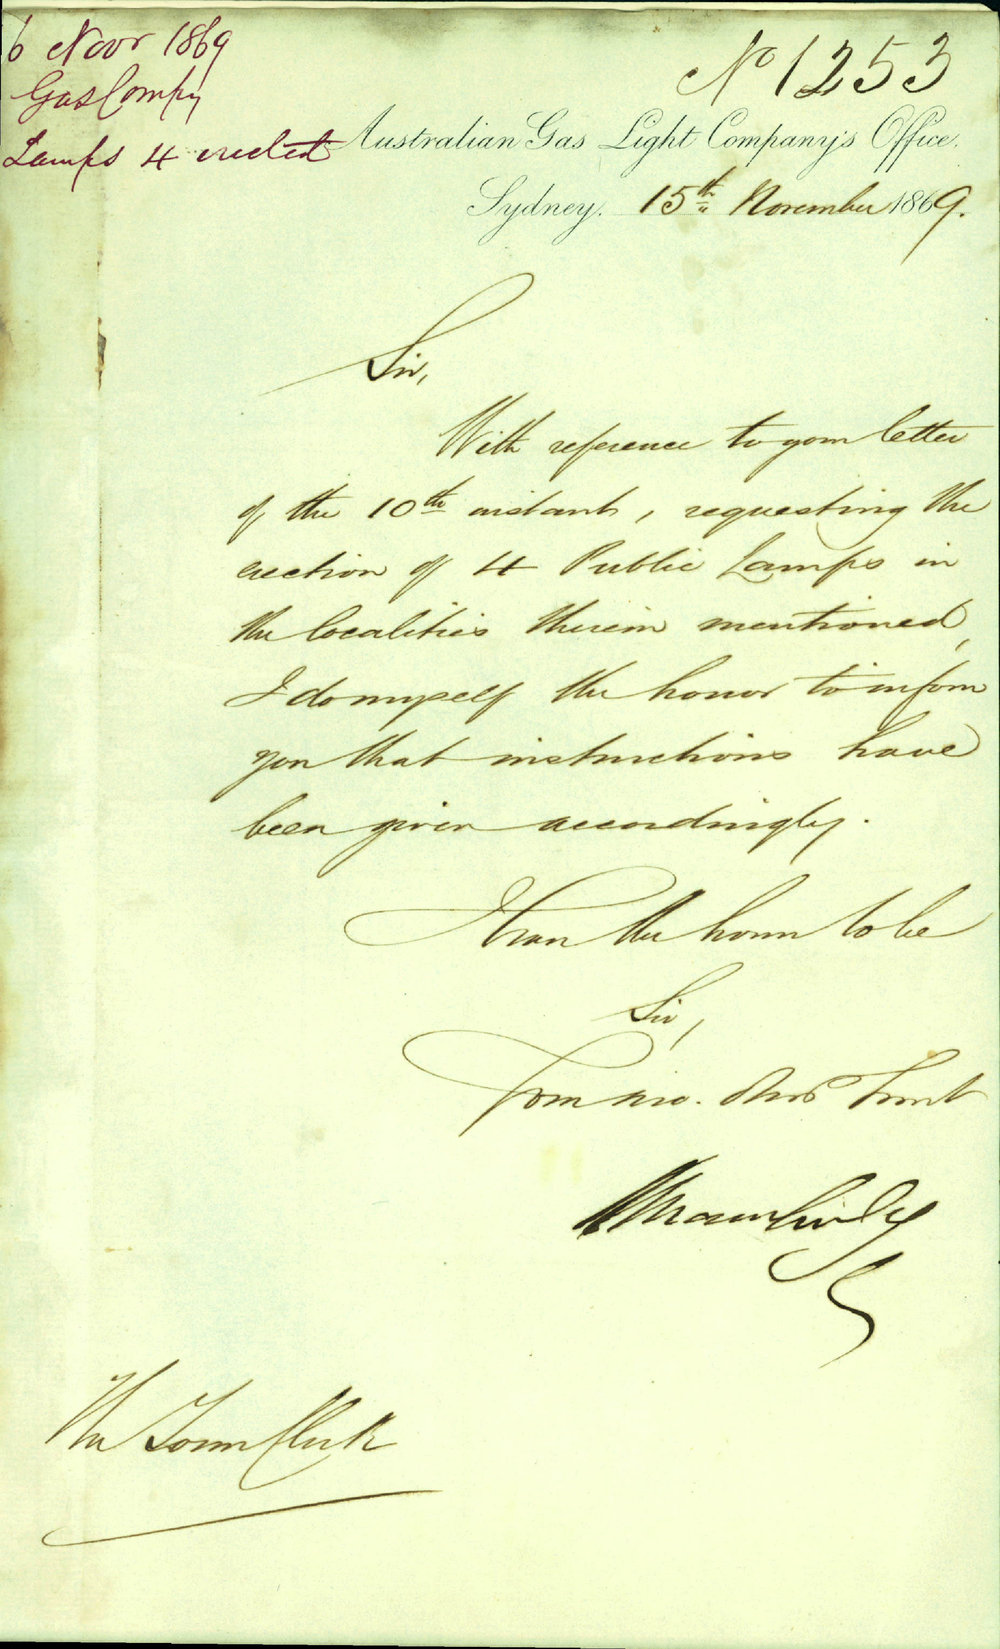 6 Novr 1869
Gas Compy
Lamps 4 erected
No 1253
Australian Gas Light Company's Office.
Sydney. 15th November 1869.
Sir,
With reference to your letter
of the 10th instant, requesting the
erection of 4 Public Lamps in
the localities therein mentioned,
I do myself the honor to inform
you that instructions have
been given accordingly.
I have the honor to be
Sir,
Your mo. Obd Servt
The Town Clerk